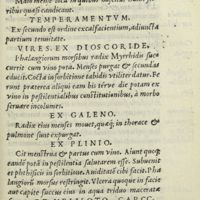 ribus quasi candicant.
TEMPERAMENTVM.
Ex secundo est ordine excalfacientium, adiuncta
partium tenuitate.
VIRES. EX DIOSCORIDE.
Phalangiorum morsibus radix Myrrhidis suc-
currit cum vino pota. Menses purgat & secundas
educit. Cocta in sorbitione tabidis vtiliter datur. Fe-
runt præterea aliqui eam bis térve die potam ex
vino in pestilentialibus constitutionibus, à morbo
seruare incolumes.
EX GALENO.
Radix eius menses mouet, quæq; in thorace &
pulmone sunt expurgat.
EX PLINIO.
Cit menstrua & partus cum vino. Aiunt quoq;
eandē potā in pestilentia salutarem esse. Subuenit
& phthisicis in sorbitione. Auiditatē cibi facit. Pha
langiorū morsus restringit. Vlcera quoque in facie
aut capite succus eius in aqua triduo maceratæ